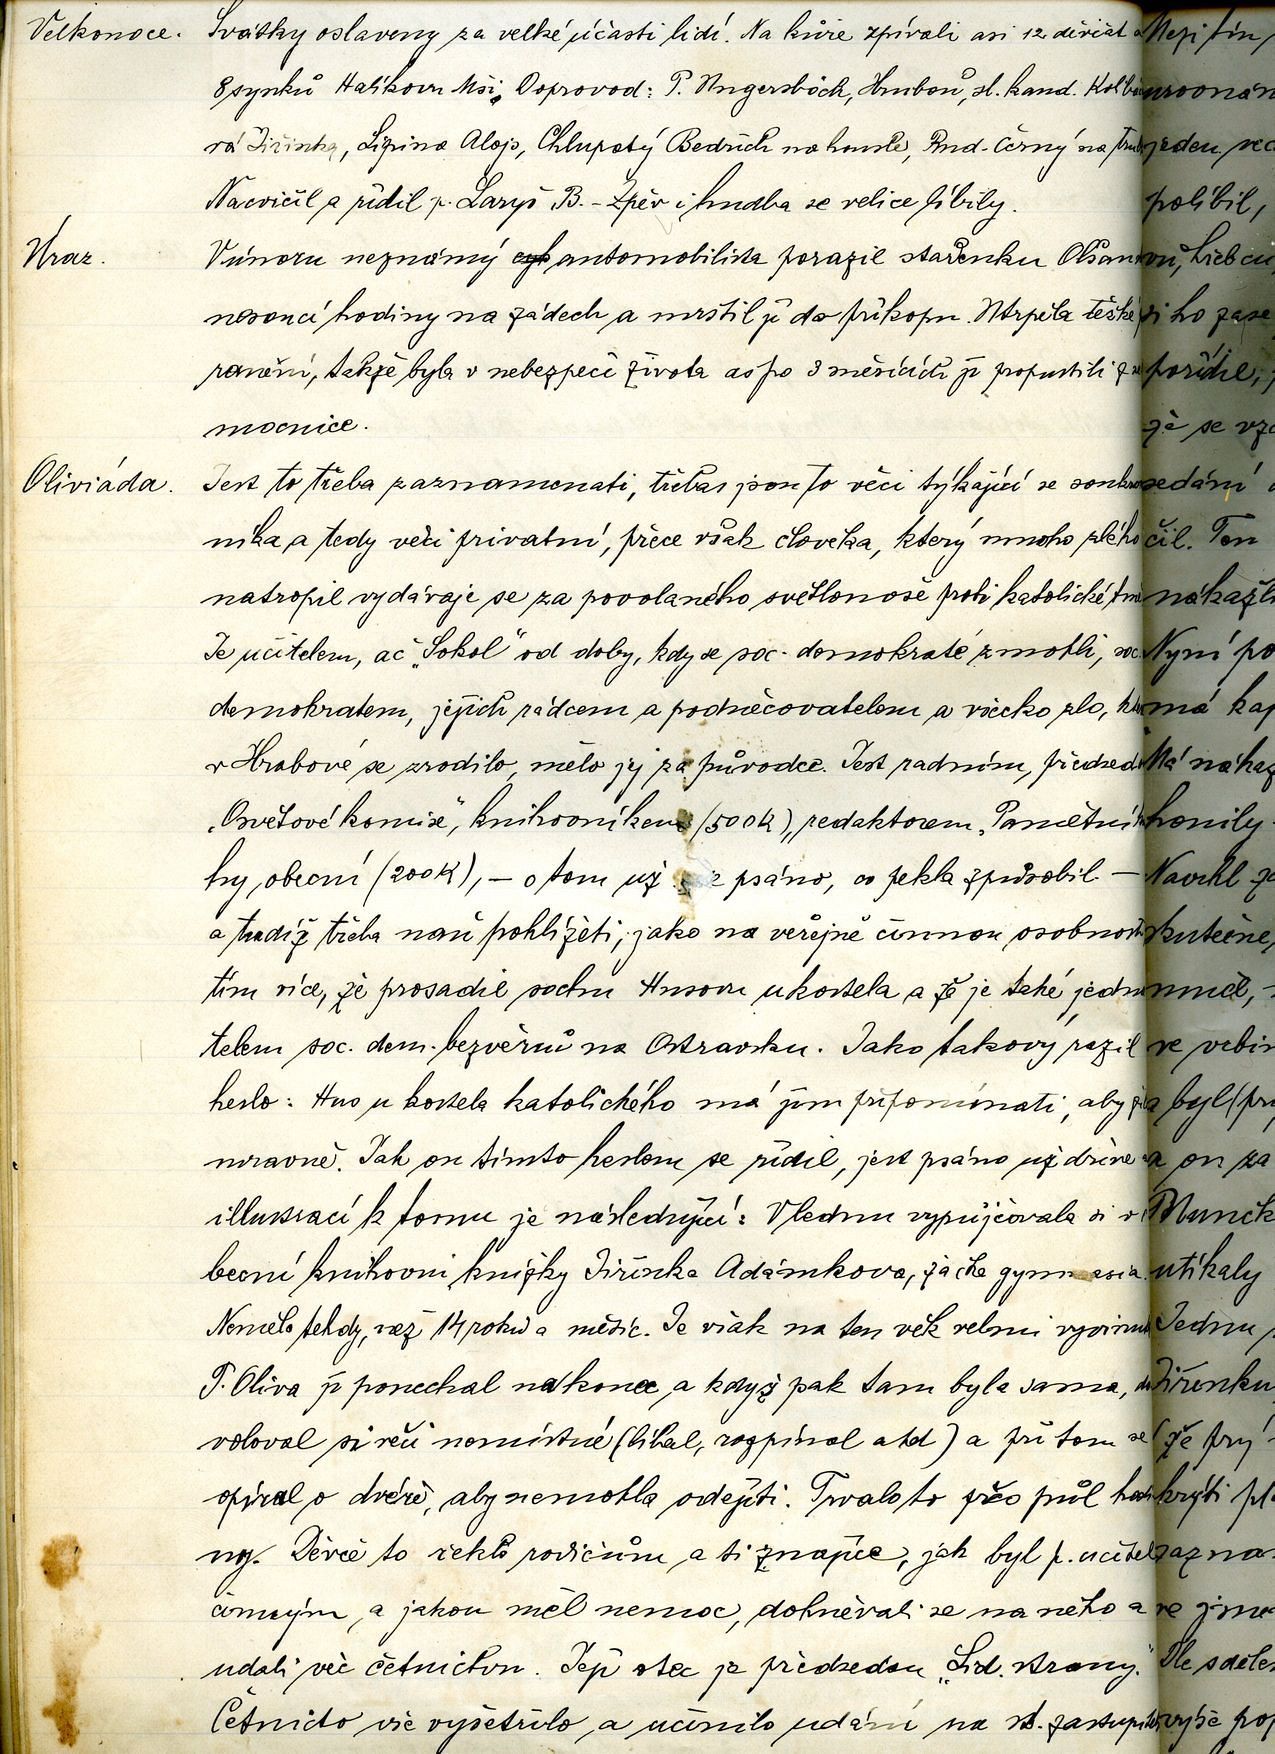 Velkonoce. Svátky oslaveny za velké účasti lidí. Na kůře zpívali asi 12 děvčat a
8 synků Halíkovu Mši. Doprovod: P. Ungersböck, Hrubou, sl. kand. Kolbá
rá Jiřinka, Lipina Alojs, Chlupatý Bedřich na housle, Rud. Černý na trub
Nacvičil a řídil p. Laryš B. - Zpěv i hudba se velice líbily.
Úraz. V únoru neznámý automobilista porazil stařenku Olšan
nesoucí hodiny na zádech a mrštil jí do příkopu. Utrpěla těžké
ranění, takže byla v nebezpečí života a po 3 měsících ji propustili z ne
mocnice.
Oliviáda. Jest to třeba zaznamenati, třebas jsou to věci týkající se soukro
níka a tedy věci privatní, přece však člověka, který mnoho zlého
natropil vydávaje se za povolaného světlonoše proti katolické tmě
Je učitelem, ač „Sokol" od doby, kdy se soc. demokraté zmohli, soc.
demokratem, jejich rádcem a podněcovatelem a všecko zlo, kte
v Hrabové se zrodilo, mělo jej za původce. Jest radním, předsed
„Osvětové komise", knihovníkem (500 K), redaktorem „Pamětní k
hy obecní (200 K), – o tom už je psáno, co pekla způsobil –
a tudíž třeba naň pohlížeti, jako na veřejně činnou osobnost
tím více, že prosadil sochu Husovu u kostela a že je také jedna
telem soc. dem. bezvěrců na Ostravsku. Jako takový razil
heslo: Hus u kostela katolického má jim připomínati, aby ži
mravně. Jak on tímto heslem se řídil, jest psáno už dříve a
illustrací k tomu je následující: V lednu vypůjčovala si v o
becní knihovni knížky Jiřinka Adámkova, žačka gymnasia.
Neměla tehdy, než 14 roků a měsíc. Je však na ten věk velmi vyvinut
P. Oliva ji ponechal nakonec a když pak tam byla sama, do
voloval si věci nemístné (líbal, rozpínal atd) a při tom se
opíral o dveře, aby nemohla odejíti. Trvalo to přes půl hodi
ny. Děvče to řeklo rodičům a ti znajíce, jak byl p. učitel
činným, a jakou měl nemoc, dohněvali se na něho a
udali věc četnictvu. Její otec je předsedou „Lid. strany."
Četnictvo věc vyšetřilo a učinilo udání na st. zastupitel
Mezi tím
urovnán
jeden več
políbil,
ou, hřebcu,
si ho zase
pořídil,
že se vzd
sedání
čil. Ten
nakažli
Nyní po
má kap
Má nakaž
honily
Navrhl
skutečně,
mněl, –
ve
a byl (pr
a on za
Blunck
utíkaly
Jednu
Jiřinku
(že prý
krýti pl
zazna
ve jme
Dle sděle
výše pop